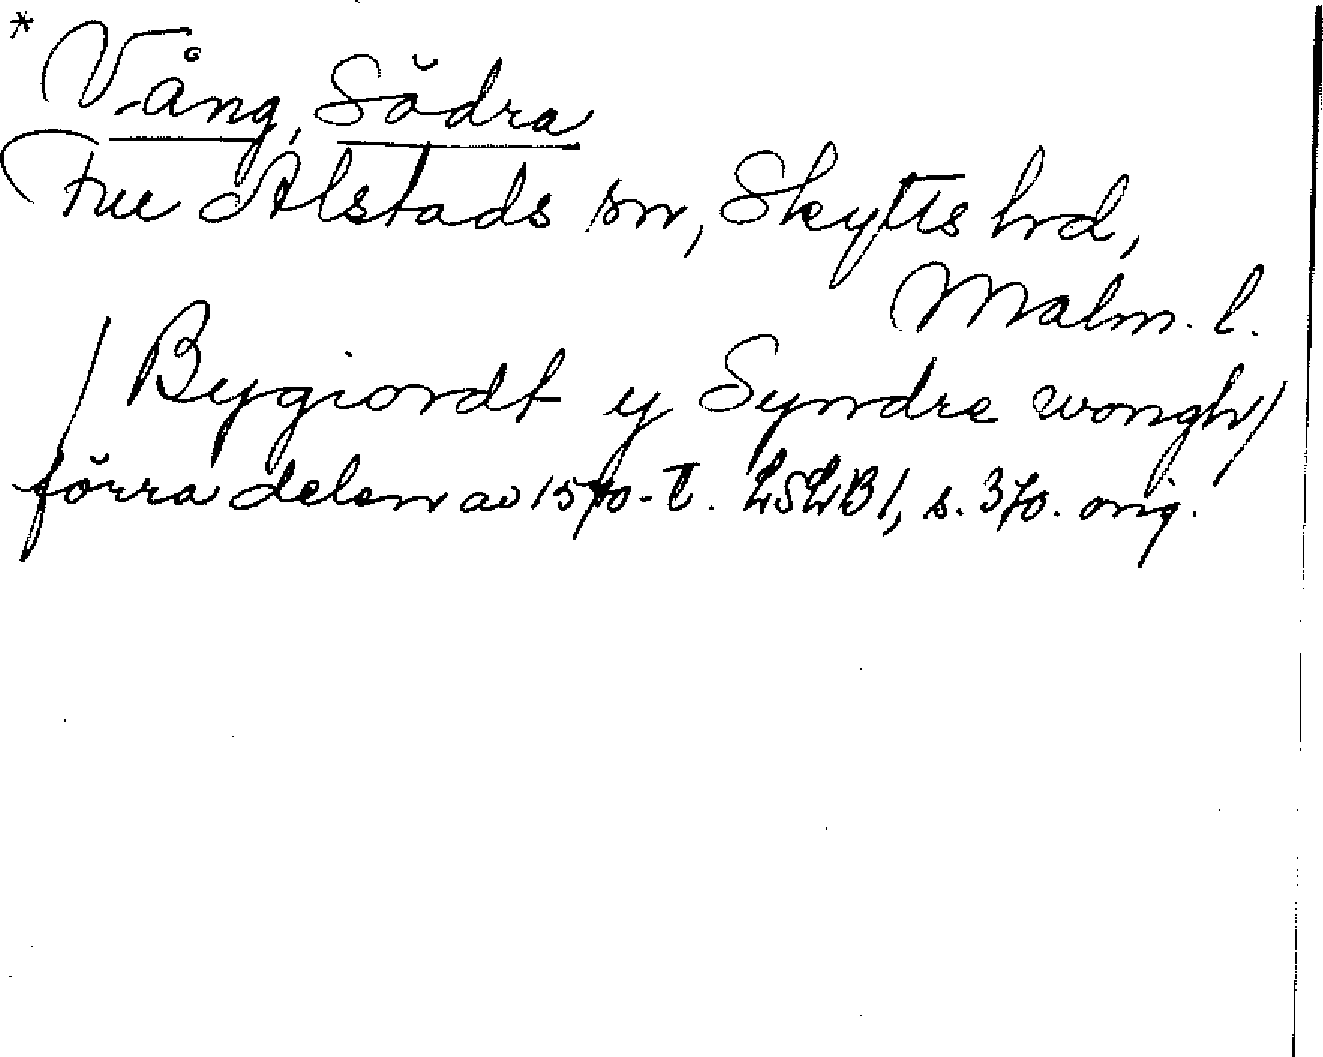 * Vång, Södra
Fru Alstads sn, Skytts hrd,
Malm. l.
/ Bygiordt y Syndre wongh /
förra delen av 1570-t. LSLB 1, s. 370. orig.